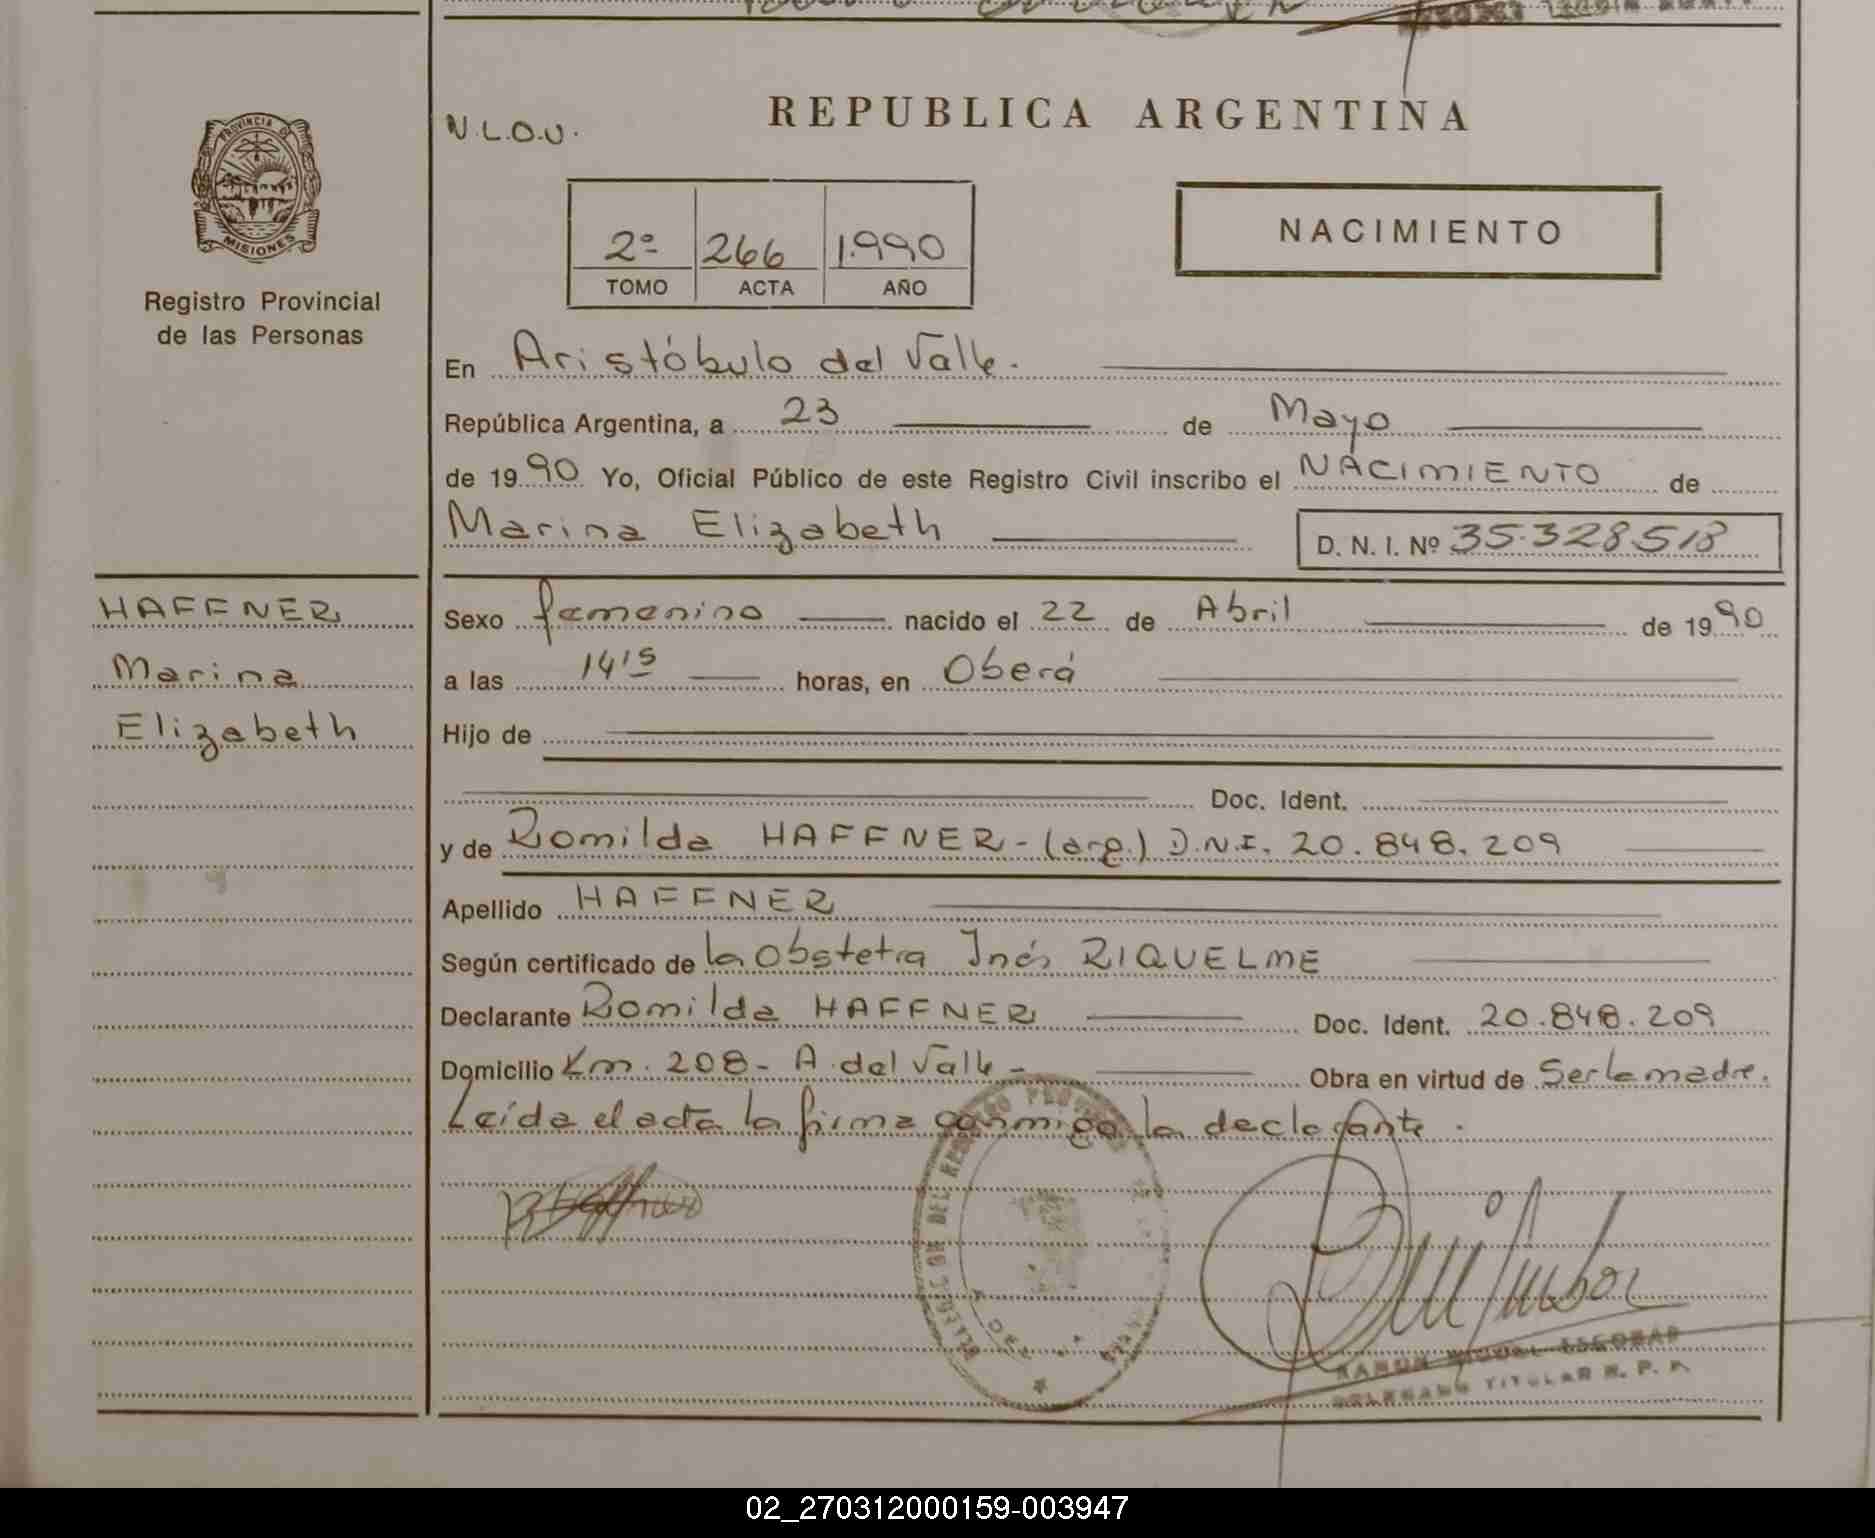 PROVINCIA DE
MISIONES
Registro Provincial
de las Personas
HAFFNER
Marina
Elizabeth
N.L.O.U.
REPUBLICA ARGENTINA
2º 266 1.990
TOMO ACTA AÑO
NACIMIENTO
En Aristóbulo del Valle.
República Argentina, a 23 de Mayo
de 1990 Yo, Oficial Público de este Registro Civil inscribo el NACIMIENTO de
Marina Elizabeth D. N. I. Nº 35.328.518
Sexo femenino nacido el 22 de Abril de 1990
a las 1415 horas, en Oberá
Hijo de
Doc. Ident.
y de Romilda HAFFNER - (arg.) D.N.I. 20.848.209
Apellido HAFFNER
Según certificado de la Obstetra Inés RIQUELME
Declarante Romilda HAFFNER Doc. Ident. 20.848.209
Domicilio Km. 208 - A. del Valle - Obra en virtud de Ser la madre.
Leída el acta la firma conmigo la declarante.
RAMON MIGUEL ESCOBAR
DELEGADO TITULAR R. P. P.
02_270312000159-003947